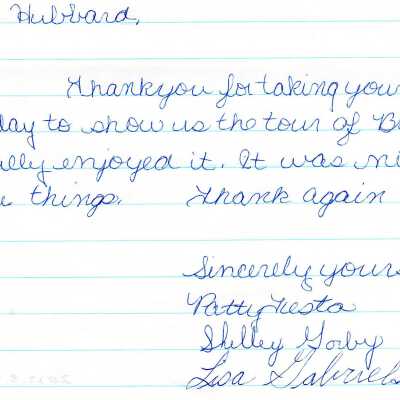 Hubbard,
Thankyou for taking your
day to show us the tour of B
ully enjoyed it. It was ni
e things. Thank again
Sincerely yours
Patty Testa
Shelley Gorby
Lisa Gabriel